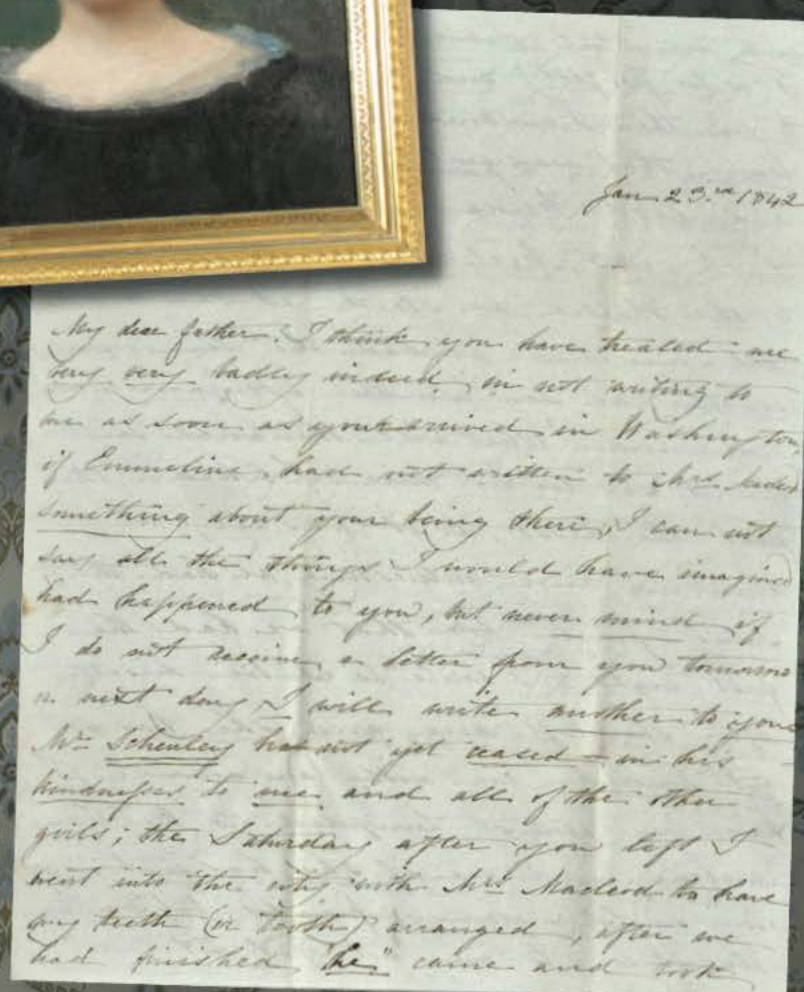 Jan 23.rd 1842
My dear father. I think you have treated me
very very badly indeed in not writing to
me as soon as you arrived in Washington
if Emmeline had not written to Mrs.
something about your being there, I can not
say all the things I would have imagined
had happened to you, but never mind if
I do not receive a letter from you tomorrow
or next day I will write another to you
Mr Schenley has not yet ceased in his
kindnesses to me and all of the other
girls; the Saturday after you left I
went into the city with Mrs. Macleod to have
my teeth (or tooth) arranged, after we
had finished "he" came and took